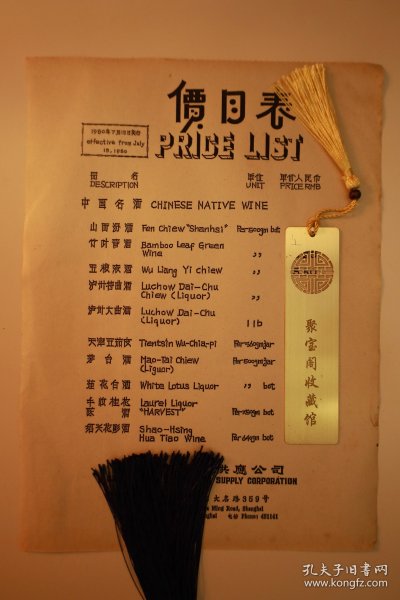 價目表
1980年7月15日实行
effective from July
15, 1980
PRICE LIST
品 名 單位 單价人民币
DESCRIPTION UNIT PRICE RMB
中国名酒 CHINESE NATIVE WINE
山西汾酒 Fen Chiew "Shanhsi" Per 500gm bot
竹叶青酒 Bamboo Leaf Green
Wine ,,
五粮液酒 Wu Liang Yi chiew ,,
泸州特曲酒 Luchow Dai-Chu
Chiew (Liquor) ,,
泸州大曲酒 Luchow Dai-Chu
(Liquor) 1 lb
天津五茄皮 Tientsin Wu-Chia-pi
茅台酒 Mao-Tai Chiew
(Liquor)
莲花白酒 White Lotus Liquor ,, bot
桂花 Laurel Liquor
酒 "HARVEST"
绍兴花彫酒 Shao-Hsing
Hua Tiao Wine Per 640gm bot
供應公司
SUPPLY CORPORATION
大名路359号
Ming Road, Shanghai
电話 Phone:
聚宝阁收藏馆
孔夫子旧书网
www.kongfz.com